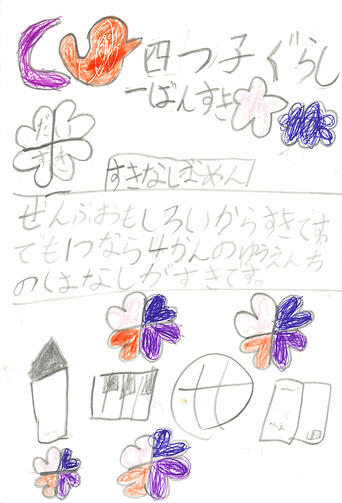 四つ子ぐらし
一ばんすき
だいすき
すきなしばめん
ぜんぶおもしろいからすきです。
でも1つなら4かんのゆうえんち
のはなしがすきです。